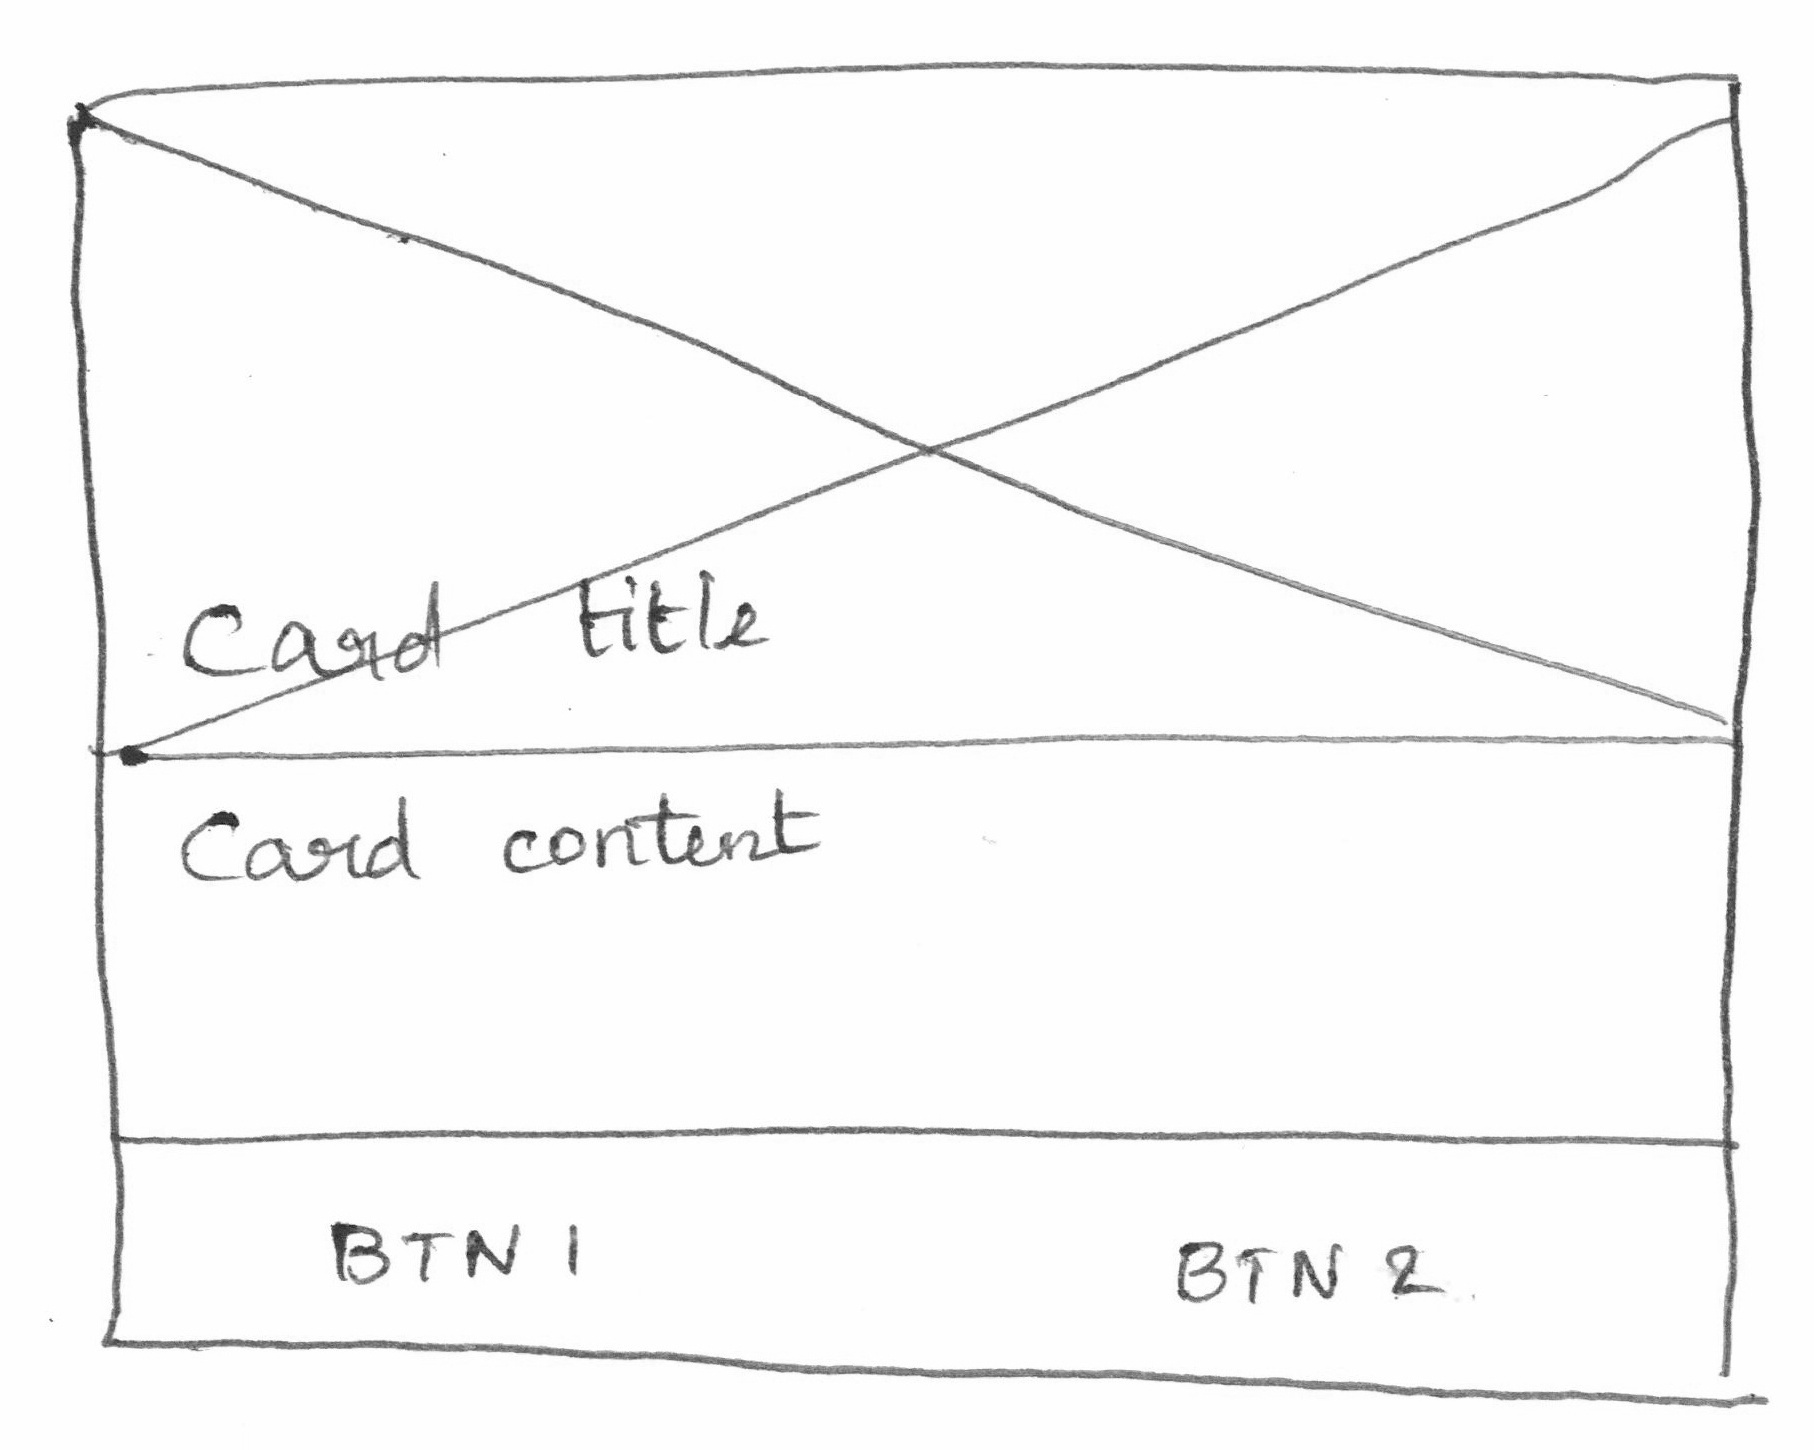 Card title
Card content
BTN 1 BTN 2